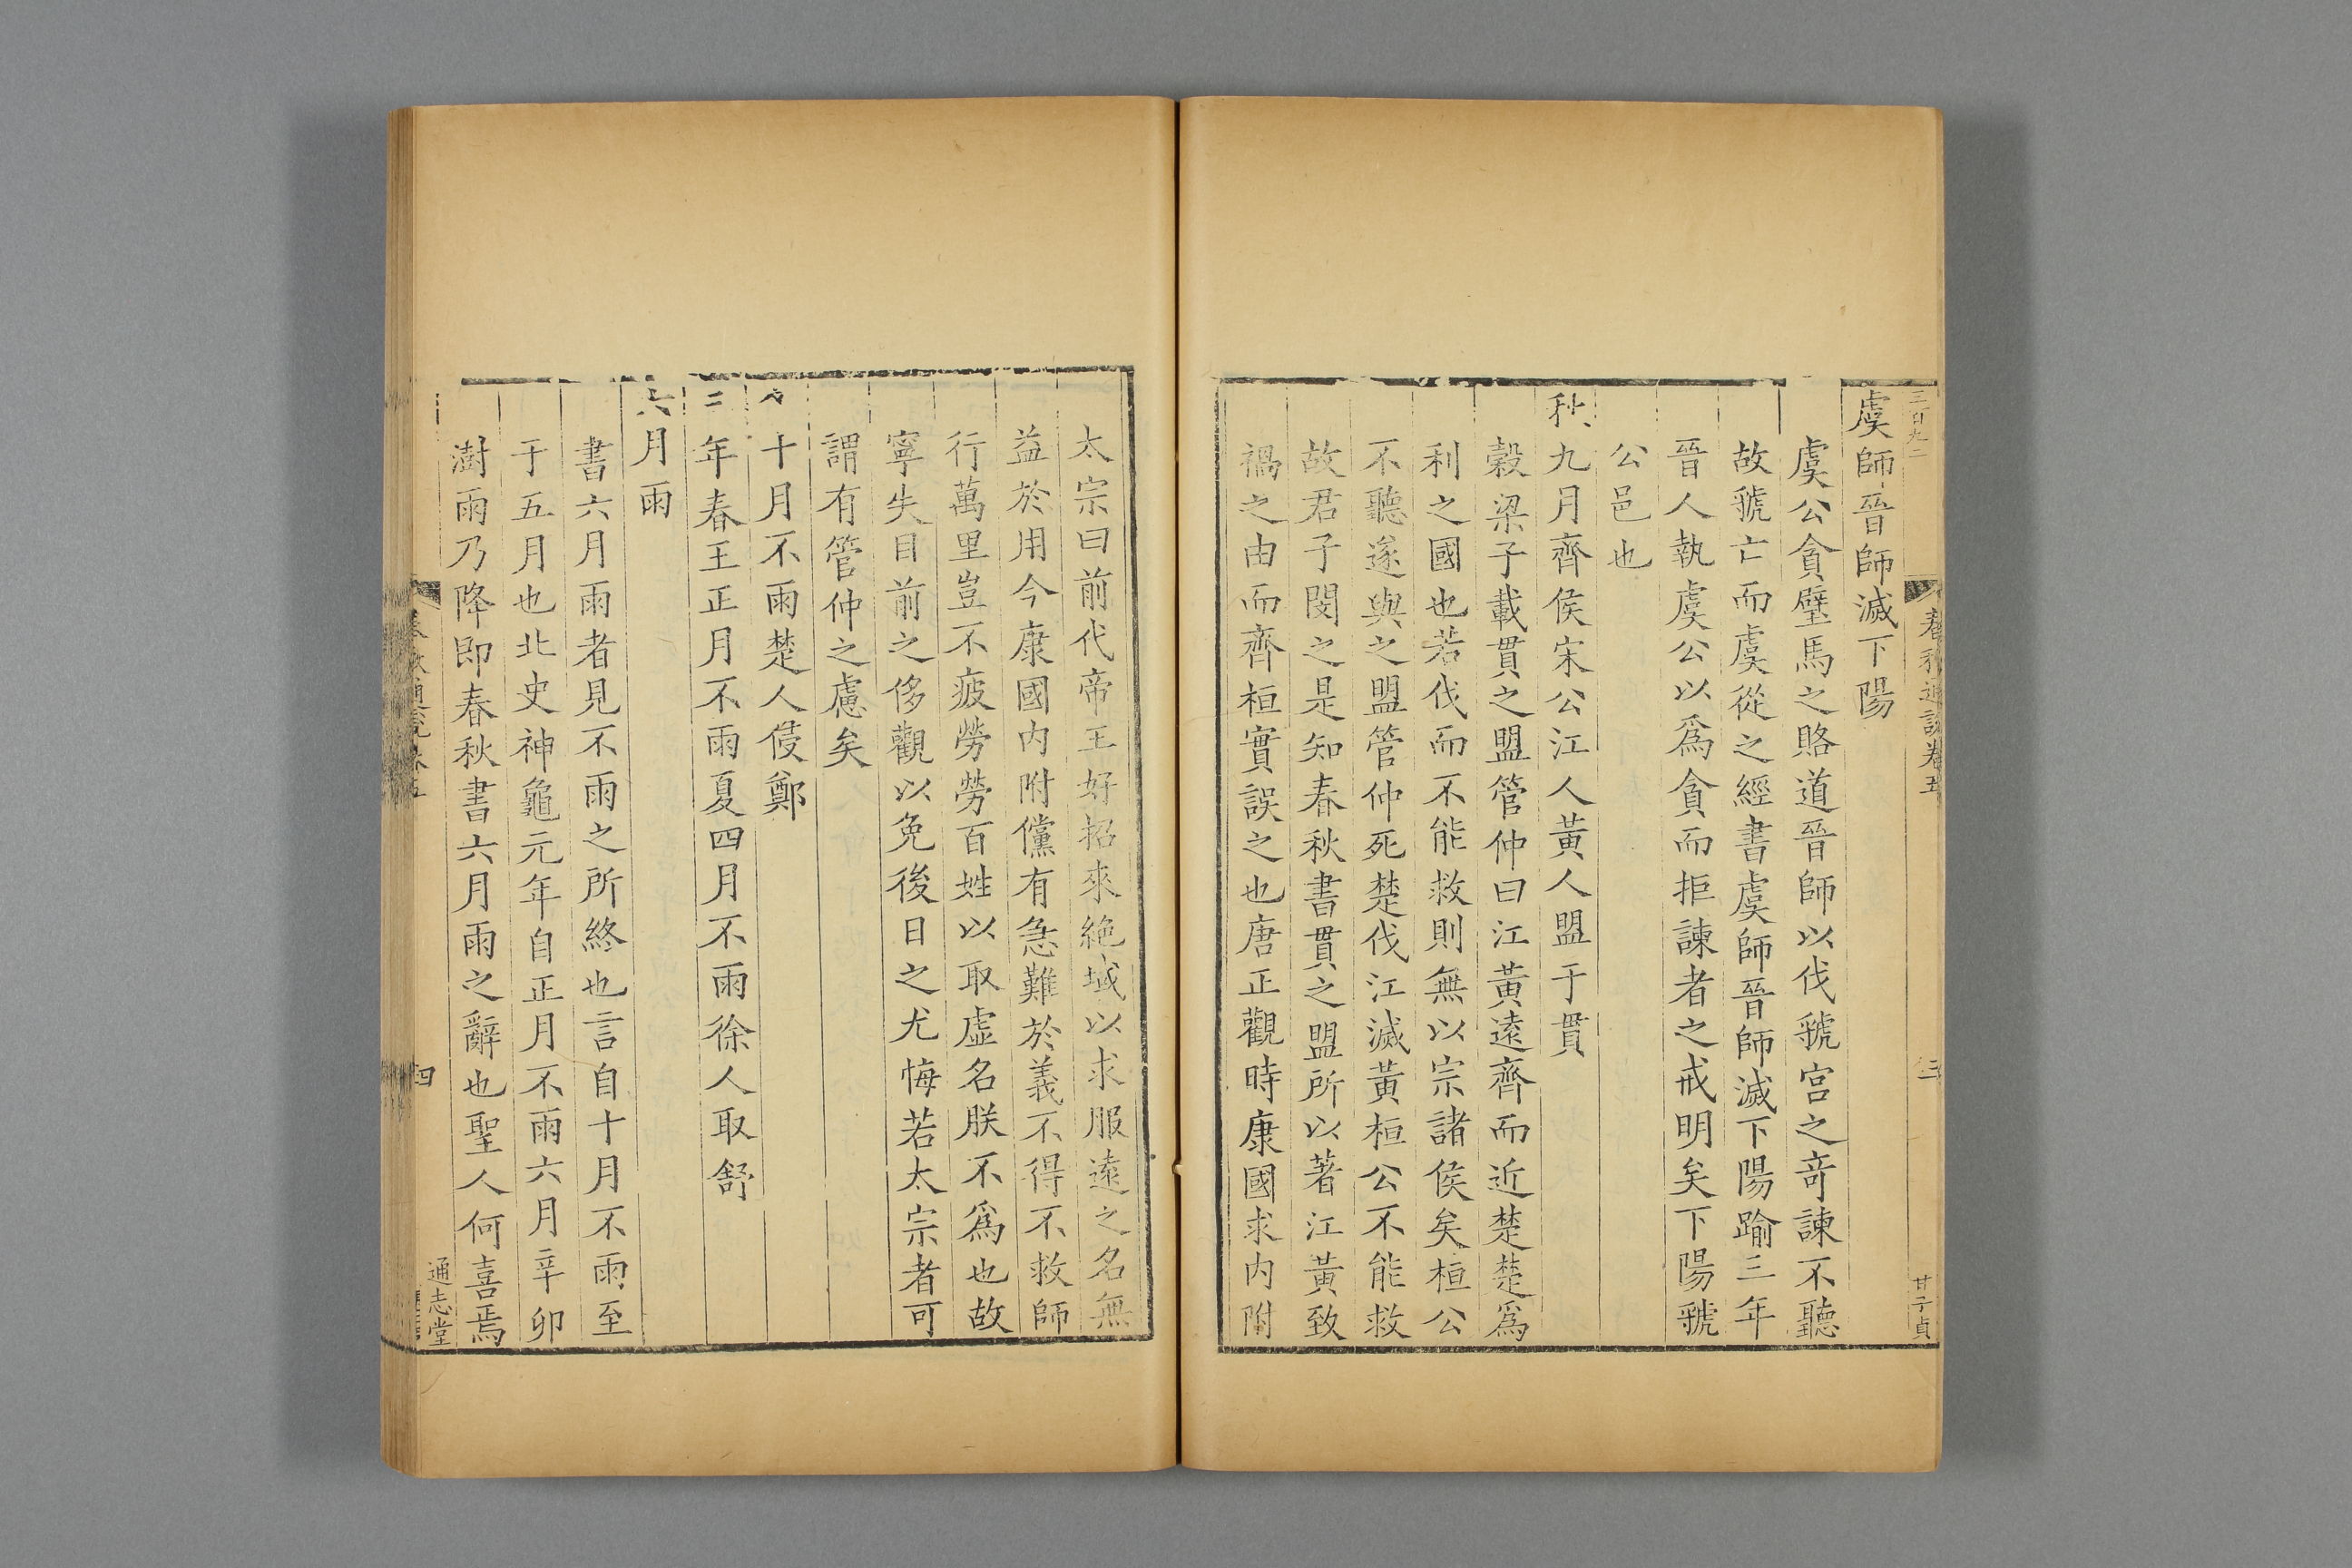 三百九二
春秋通說卷五
三
甘子貞
虞師晉師滅下陽
虞公貪璧馬之賂道晉師以伐虢宫之竒諫不聽
故虢亡而虞從之經書虞師晉師滅下陽踰三年
晉人執虞公以爲貪而拒諫者之戒明矣下陽虢
公邑也
秋九月齊侯宋公江人黃人盟于貫
穀梁子載貫之盟管仲曰江黃遠齊而近楚楚爲
利之國也若伐而不能救則無以宗諸侯矣桓公
不聽遂與之盟管仲死楚伐江滅黃桓公不能救
故君子閔之是知春秋書貫之盟所以著江黃致
禍之由而齊桓實誤之也唐正觀時康國求内附
太宗曰前代帝王好招來絶域以求服遠之名無
益於用今康國内附儻有急難於義不得不救師
行萬里豈不疲勞勞百姓以取虛名朕不爲也故
寧失目前之侈觀以免後日之尤悔若太宗者可
謂有管仲之慮矣
冬十月不雨楚人侵鄭
三年春王正月不雨夏四月不雨徐人取舒
六月雨
書六月雨者見不雨之所終也言自十月不雨至
于五月也北史神龜元年自正月不雨六月辛卯
澍雨乃降即春秋書六月雨之辭也聖人何喜焉
春秋通說卷五
四
通志堂